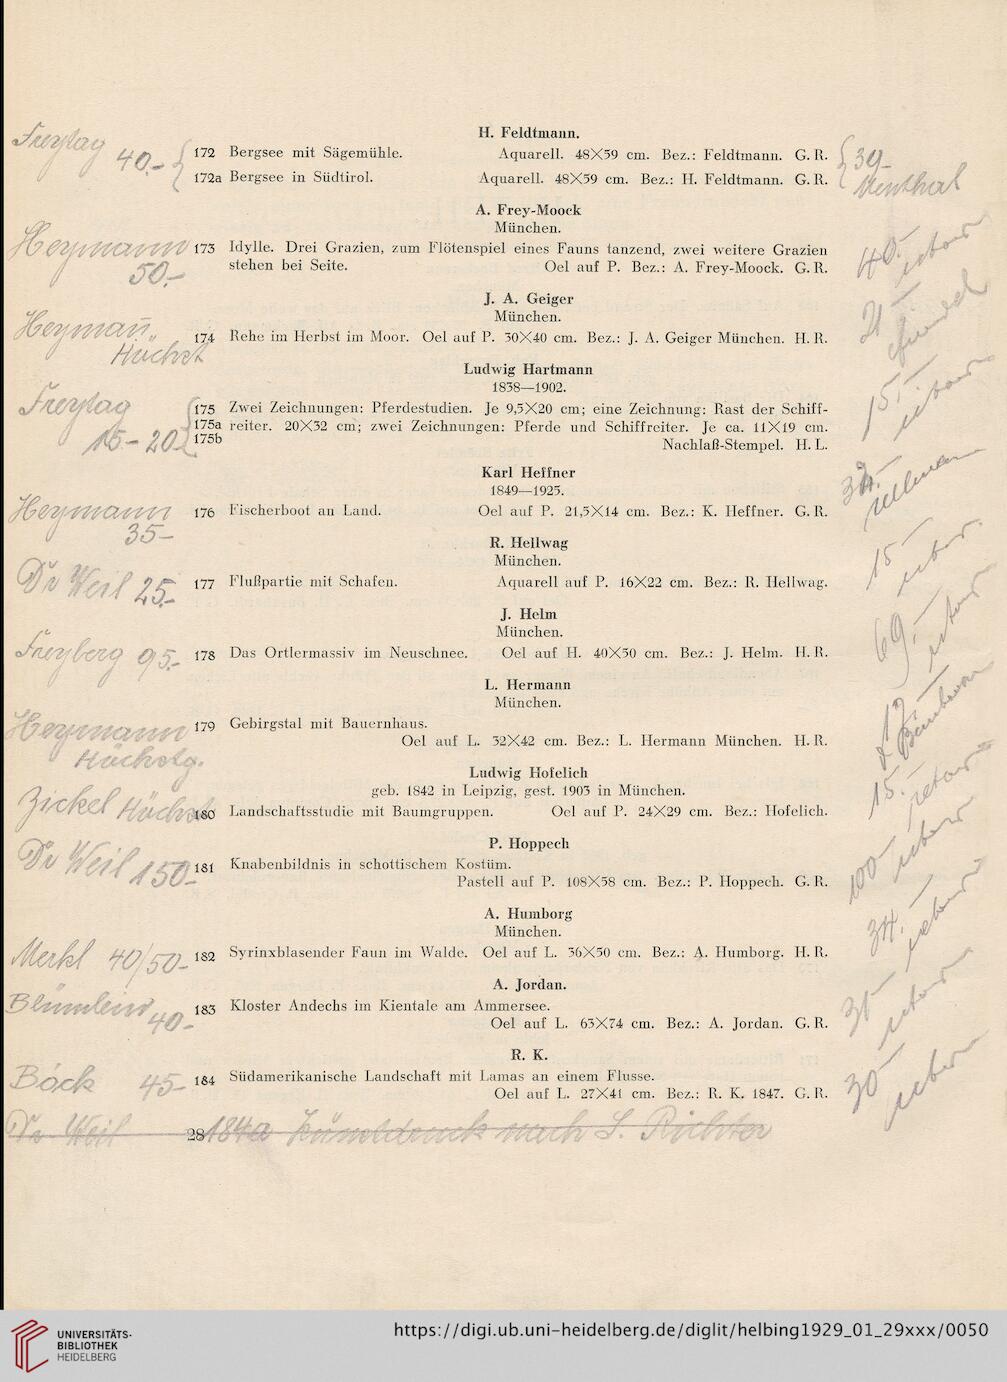 H. Feldtmann.
Freytag 40.- { 172 Bergsee mit Sägemühle. Aquarell. 48×59 cm. Bez.: Feldtmann. G. R. {
172a Bergsee in Südtirol. Aquarell. 48×59 cm. Bez.: H. Feldtmann. G. R.
A. Frey-Moock
München.
Heymann 173 Idylle. Drei Grazien, zum Flötenspiel eines Fauns tanzend, zwei weitere Grazien 40.-
50.- stehen bei Seite. Oel auf P. Bez.: A. Frey-Moock. G. R.
J. A. Geiger
München.
Heymañ
Höchst 174 Rehe im Herbst im Moor. Oel auf P. 30×40 cm. Bez.: J. A. Geiger München. H. R.
Ludwig Hartmann
1838—1902.
Freytag 175 Zwei Zeichnungen: Pferdestudien. Je 9,5×20 cm; eine Zeichnung: Rast der Schiff- 15.-
175a reiter. 20×32 cm; zwei Zeichnungen: Pferde und Schiffreiter. Je ca. 11×19 cm.
15-20.- 175b Nachlaß-Stempel. H. L.
Karl Heffner
1849—1925.
Heymann 176 Fischerboot an Land. Oel auf P. 21,5×14 cm. Bez.: K. Heffner. G. R.
35-
R. Hellwag
München. 15-
Dr Weil 25.- 177 Flußpartie mit Schafen. Aquarell auf P. 16×22 cm. Bez.: R. Hellwag.
J. Helm
München.
Freyberg 95.- 178 Das Ortlermassiv im Neuschnee. Oel auf H. 40×50 cm. Bez.: J. Helm. H. R. 69.-
L. Hermann
München.
Heymann 179 Gebirgstal mit Bauernhaus.
Oel auf L. 32×42 cm. Bez.: L. Hermann München. H. R.
Höchstg.
Ludwig Hofelich
geb. 1842 in Leipzig, gest. 1903 in München. 15.-
Zickel Höchst 180 Landschaftsstudie mit Baumgruppen. Oel auf P. 24×29 cm. Bez.: Hofelich.
P. Hoppech
Dr Weil 150.- 181 Knabenbildnis in schottischem Kostüm. 100-
Pastell auf P. 108×58 cm. Bez.: P. Hoppech. G. R.
A. Humborg
München. 34.-
Merkl 40/50- 182 Syrinxblasender Faun im Walde. Oel auf L. 36×50 cm. Bez.: A. Humborg. H. R.
A. Jordan.
Blümlein 40- 183 Kloster Andechs im Kientale am Ammersee.
Oel auf L. 63×74 cm. Bez.: A. Jordan. G. R.
R. K.
Böck 45- 184 Südamerikanische Landschaft mit Lamas an einem Flusse. 30-
Oel auf L. 27×41 cm. Bez.: R. K. 1847. G. R.
Dr Weil 28 184a nach L. Richter
UNIVERSITÄTS-
BIBLIOTHEK
HEIDELBERG
https://digi.ub.uni-heidelberg.de/diglit/helbing1929_01_29xxx/0050